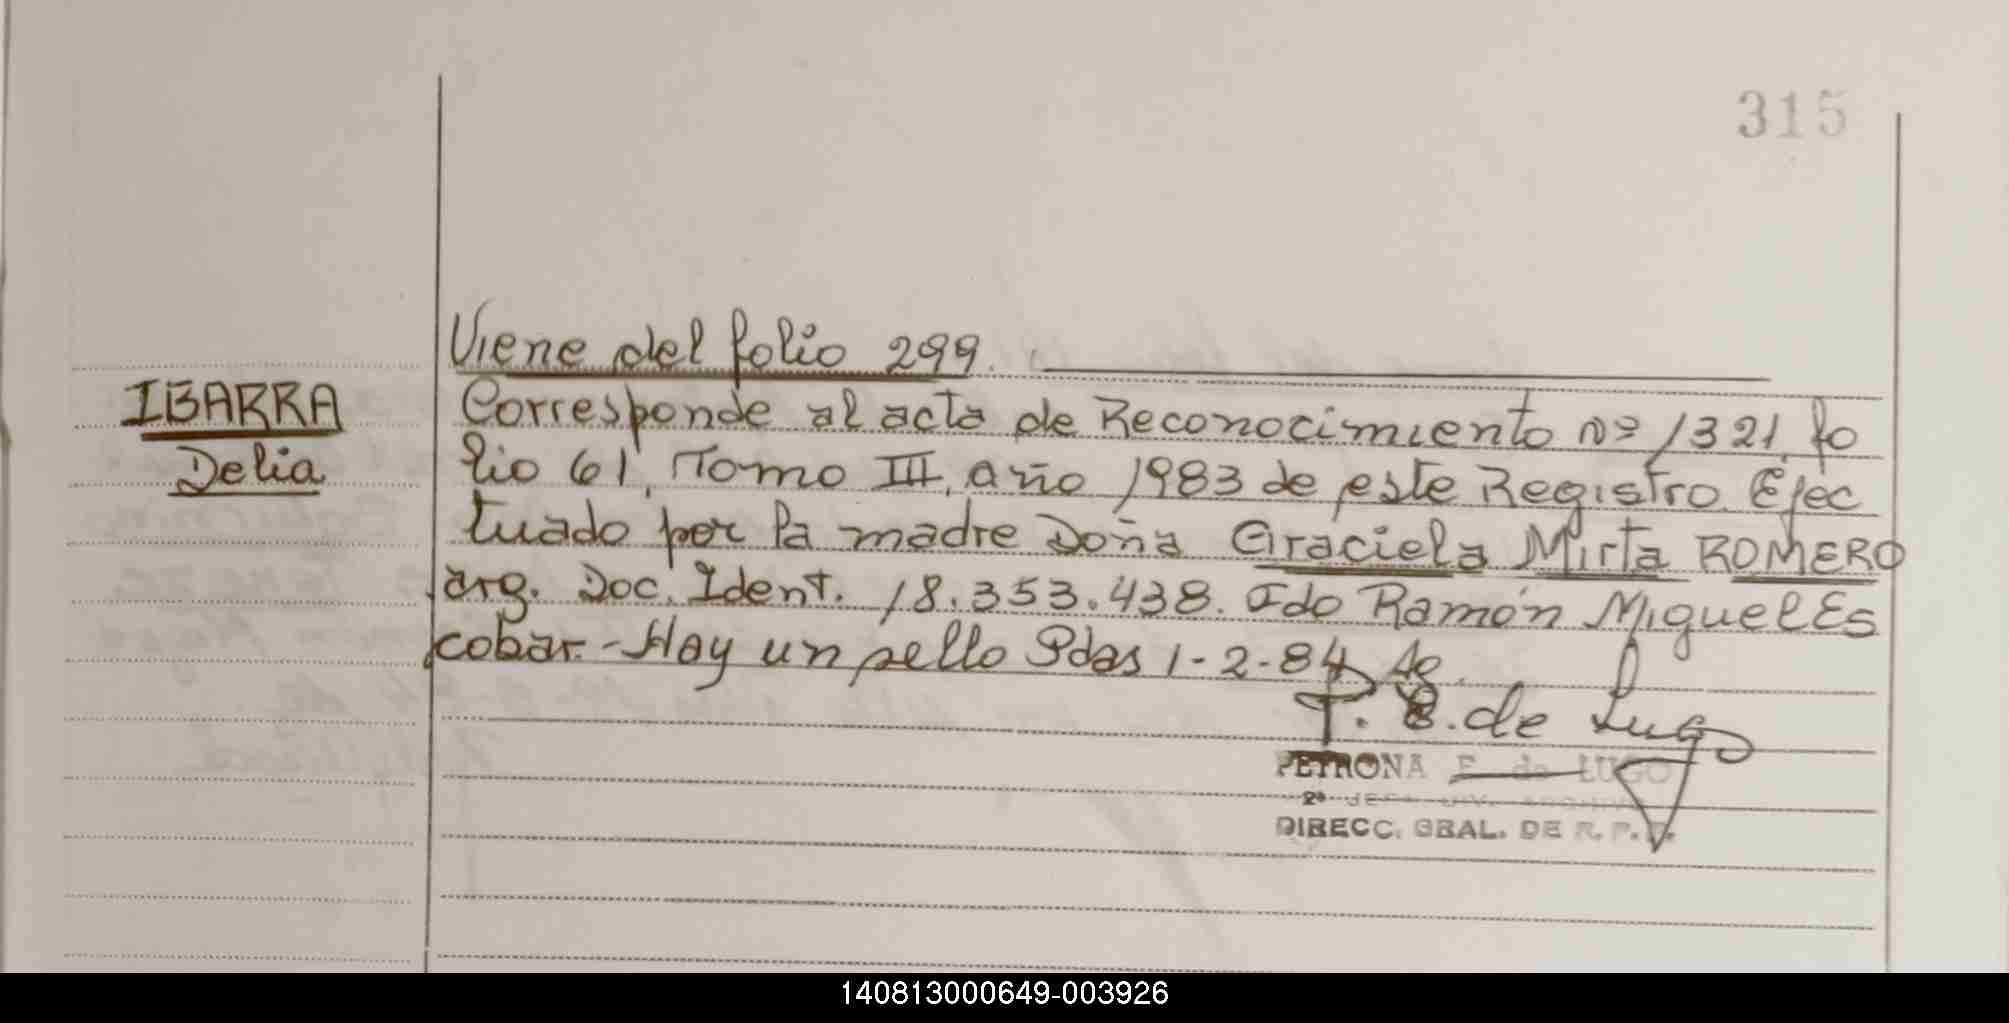 315
Viene del folio 299.
IBARRA
Delia
Corresponde al acta de Reconocimiento nº 1321, fo
lio 61, Tomo III, año 1983 de este Registro. Efec
tuado por la madre Doña Graciela Mirta ROMERO
arg. Doc. Ident. 18.353.438. Fdo Ramón Miguel Es
cobar.- Hay un sello Pdas 1-2-84
P. E. de Lugo
PETRONA E. de LUGO
2º JEFE DIV. ARCHIVO
DIRECC. GRAL. DE R. P.
140813000649-003926